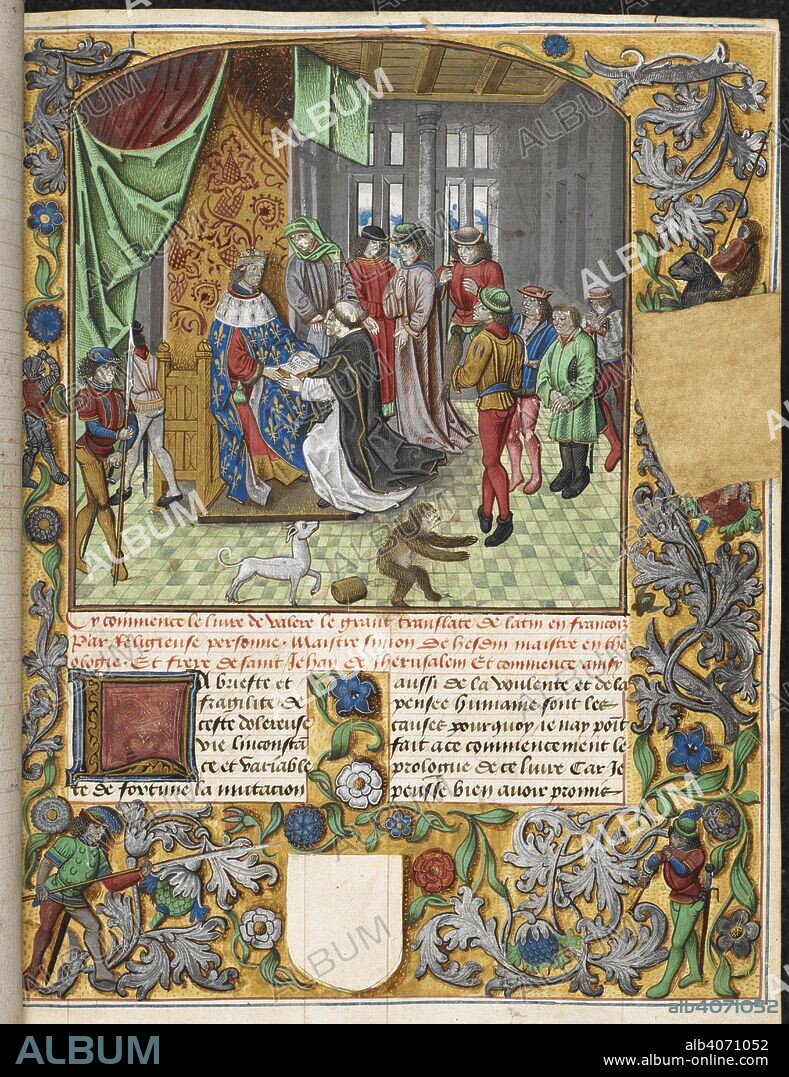 Cy commence le liure de valere le grant translate de latin en francois
Par Religieuse personne. Maistre simon de hesdin maistre en the
ologie. Et frere de saint Jehan de iherusalem Et commence ainsy
A briefte et
fragilite de
ceste dolereuse
vie linconstā
ce et variable
te de fortune la mutation
aussi de la voulente et de la
pensee humaine sont les
causes pourquoy ie nay poīt
fait a ce commencement le
prologue de ce liure Car Je
peusse bien auoir prome
alb4071052
ALBUM
alb4071052
www.album-online.com